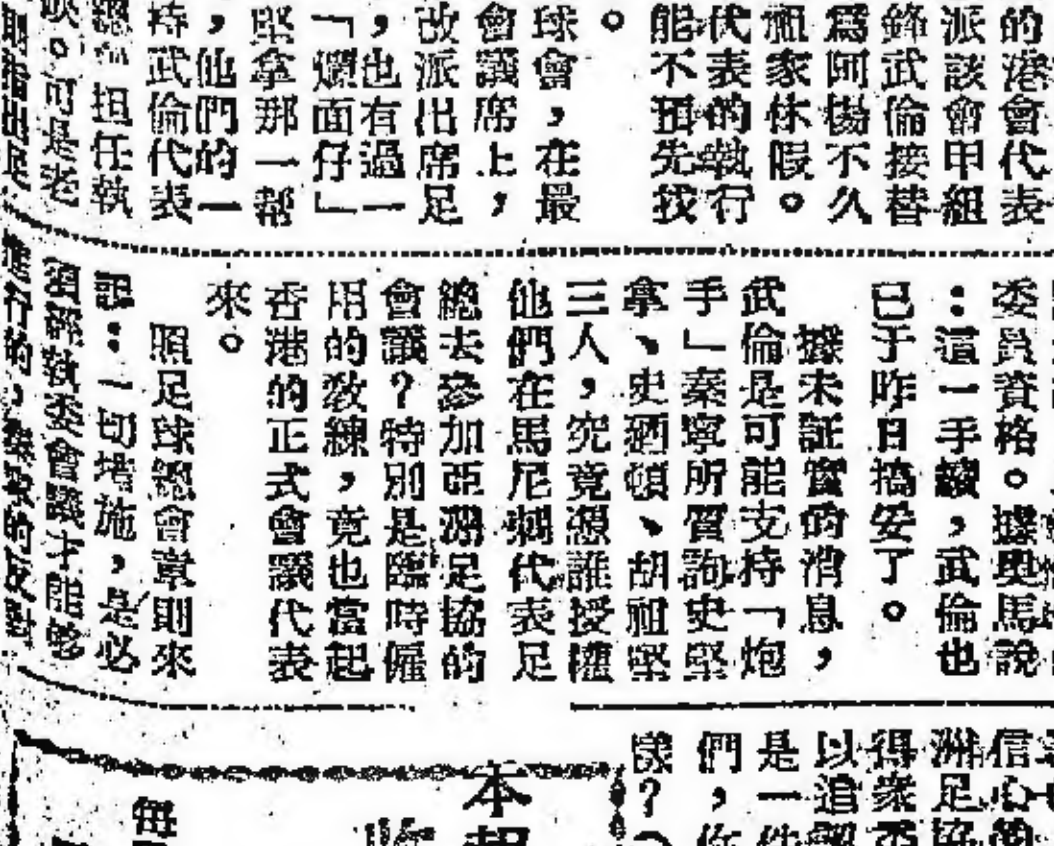 的港會代表
派該會甲組
鋒武倫接替
爲阿楊不久
組家休假。
代表的執行
能不預先找
。
球會,在最
會議席上,
改派出席足
,也有過一
「爛面仔」
堅拿那一幫
,他們的一
持武倫代表
担任執
吹。可是老
委員資格。據奧馬說
:這一手續,武倫也
已于昨日搞妥了。
據未証實的消息,
武倫是可能支持「炮
手」秦寧所質詢史堅
拿、史廼頓、胡祖堅
三人,究竟憑誰授權
他們在馬尼剌代表足
總去參加亞洲足協的
會議?特別是臨時僱
用的教練,竟也當起
香港的正式會議代表
來。
照足球總會章則來
說:一切措施,是必
須經執委會議才能够
進行的,
的反對
信心的
洲足協
得衆否
以追認
是一件
們,你
樣?
本報
每